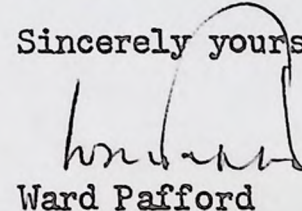 Sincerely yours
Ward Pafford